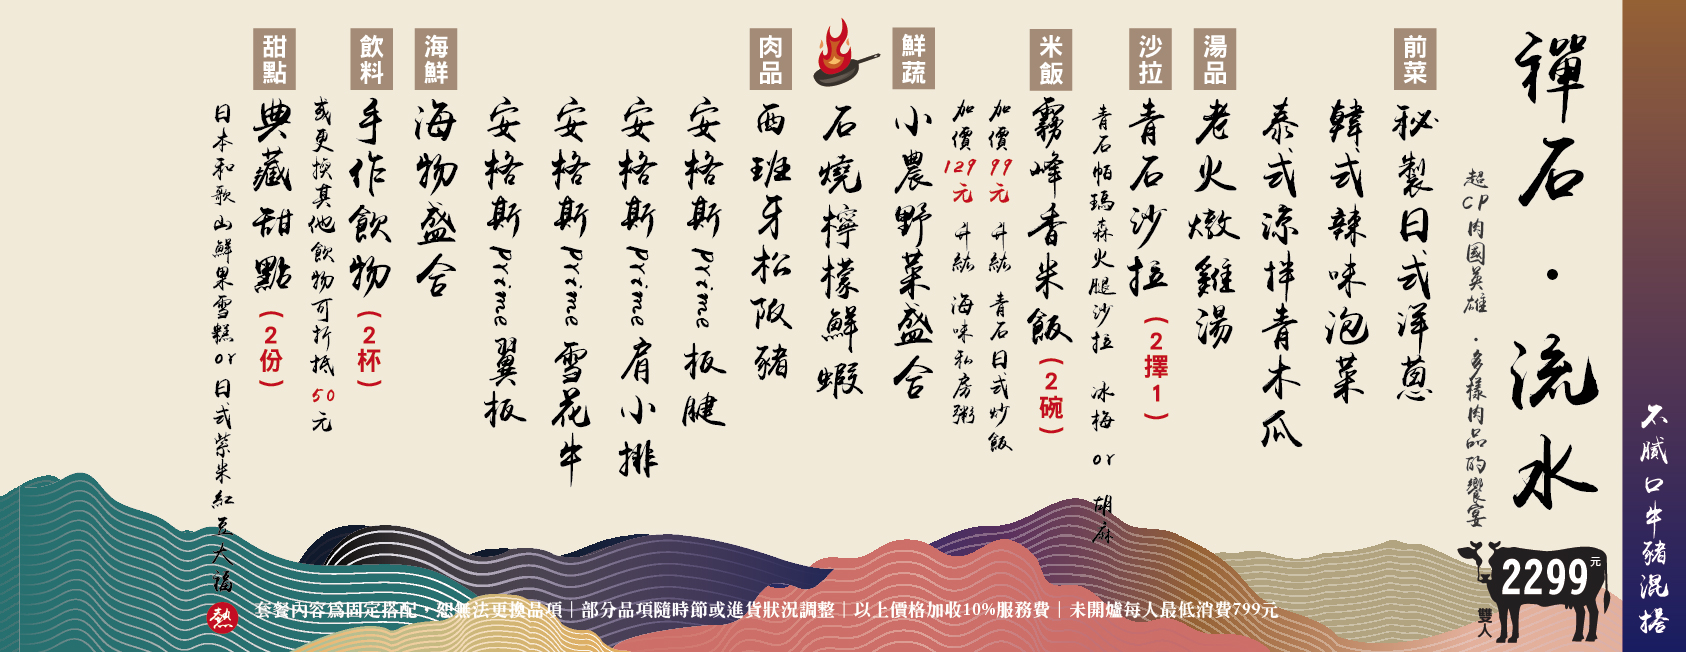 不膩口牛豬混搭
禪石・流水
超CP肉國英雄・多樣肉品的饗宴
2299元
雙人
前菜
秘製日式洋蔥
韓式辣味泡菜
泰式涼拌青木瓜
湯品
老火燉雞湯
沙拉
青石沙拉(2擇1)
青石帕瑪森火腿沙拉 冰梅 or 胡麻
米飯
霧峰香米飯(2碗)
加價99元 升級 青石日式炒飯
加價129元 升級 海味私房粥
鮮蔬
小農野菜盛合
石燒檸檬鮮蝦
肉品
西班牙松阪豬
安格斯Prime板腱
安格斯Prime肩小排
安格斯Prime雪花牛
安格斯Prime翼板
海鮮
海物盛合
飲料
手作飲物(2杯)
或更換其他飲物可折抵50元
甜點
典藏甜點(2份)
日本和歌山鮮果雪糕or日式紫米紅豆大福
熱
套餐內容為固定搭配・恕無法更換品項|部分品項隨時節或進貨狀況調整|以上價格加收10%服務費|未開爐每人最低消費799元